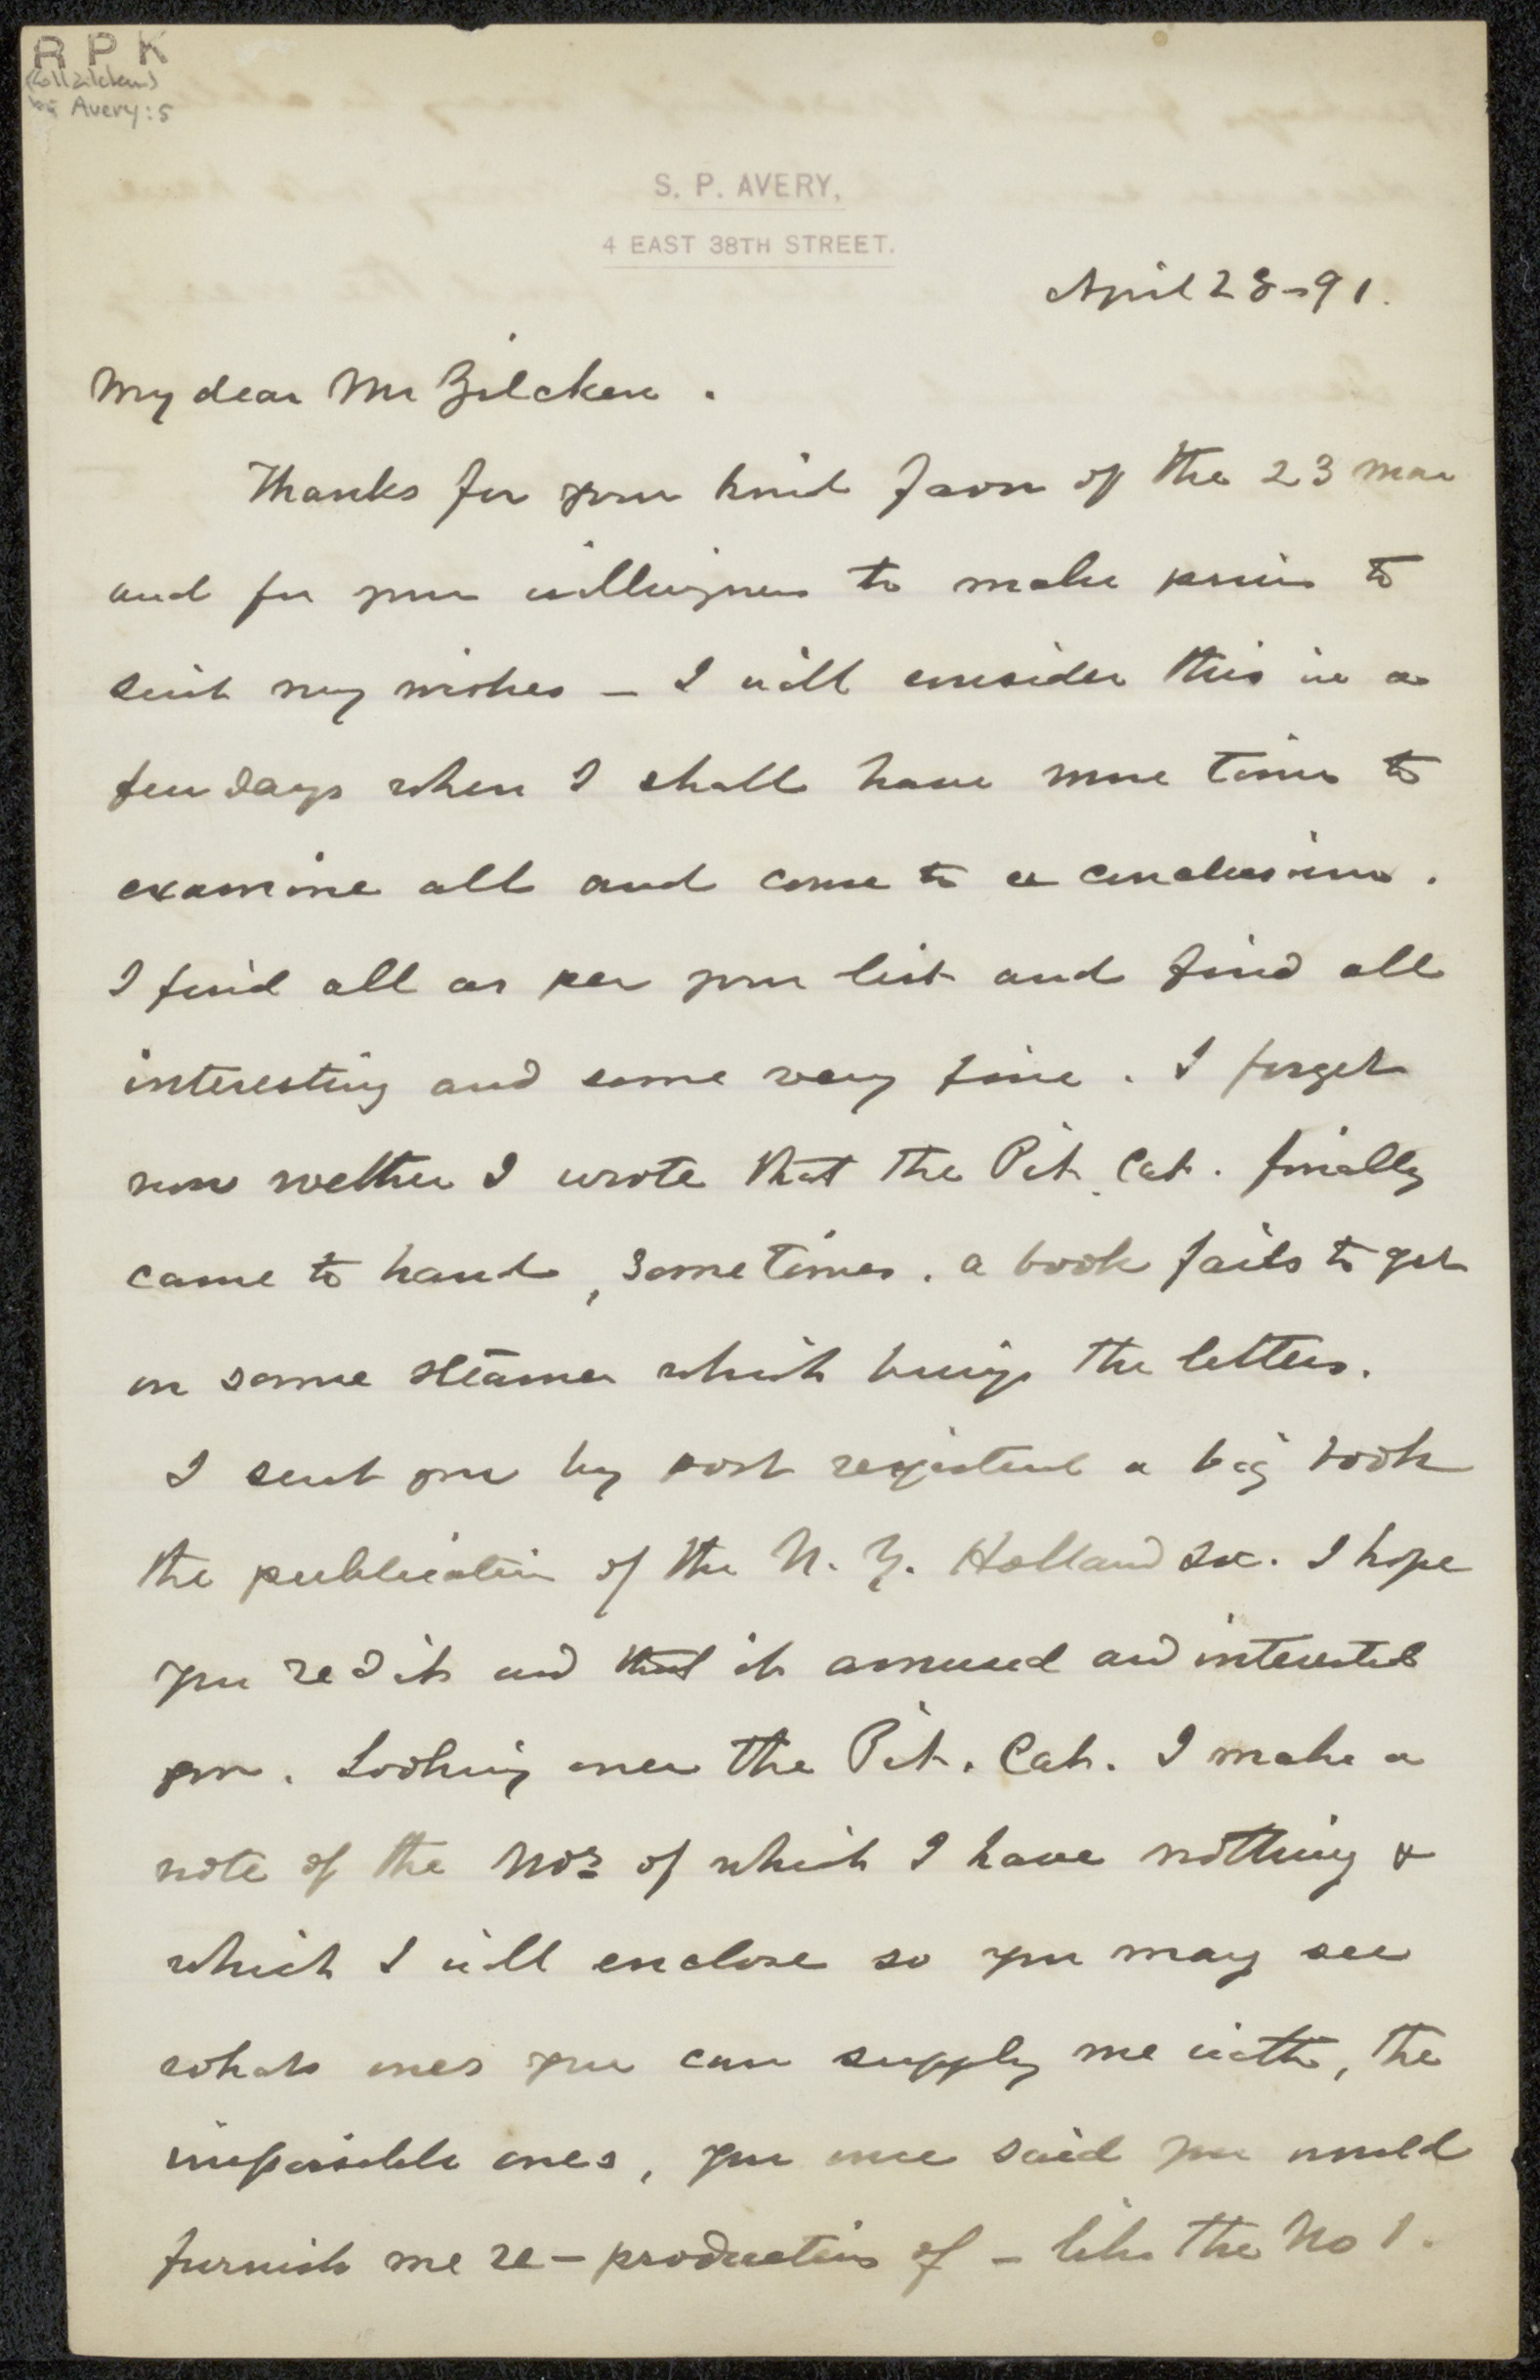 R P K
(coll Zilcken)
Avery: 5
S. P. AVERY,
4 EAST 38TH STREET.
April 28-91.
My dear Mr Zilcken.
Thanks for your kind favor of the 23 Mar
and for your willingness to make prices to
suit my wishes - I will consider this in a
few days when I shall have more time to
examine all and come to a conclusion.
I find all as per your list and find all
interesting and some very fine. I forget
now wether I wrote that the Pit. Cat. finally
came to hand, sometimes. a book fails to get
on same steamer which brings the letters.
I sent you by post registered a big book
the publication of the N. Y. Holland Soc. I hope
you red it and that it amused and interested
you. Looking over the Pit. Cat. I make a
note of the Nos of which I have nothing &
which I will enclose so you may see
what ones you can supply me with, the
impossible ones, you once said you would
furnish me re-productions of - like the No 1.